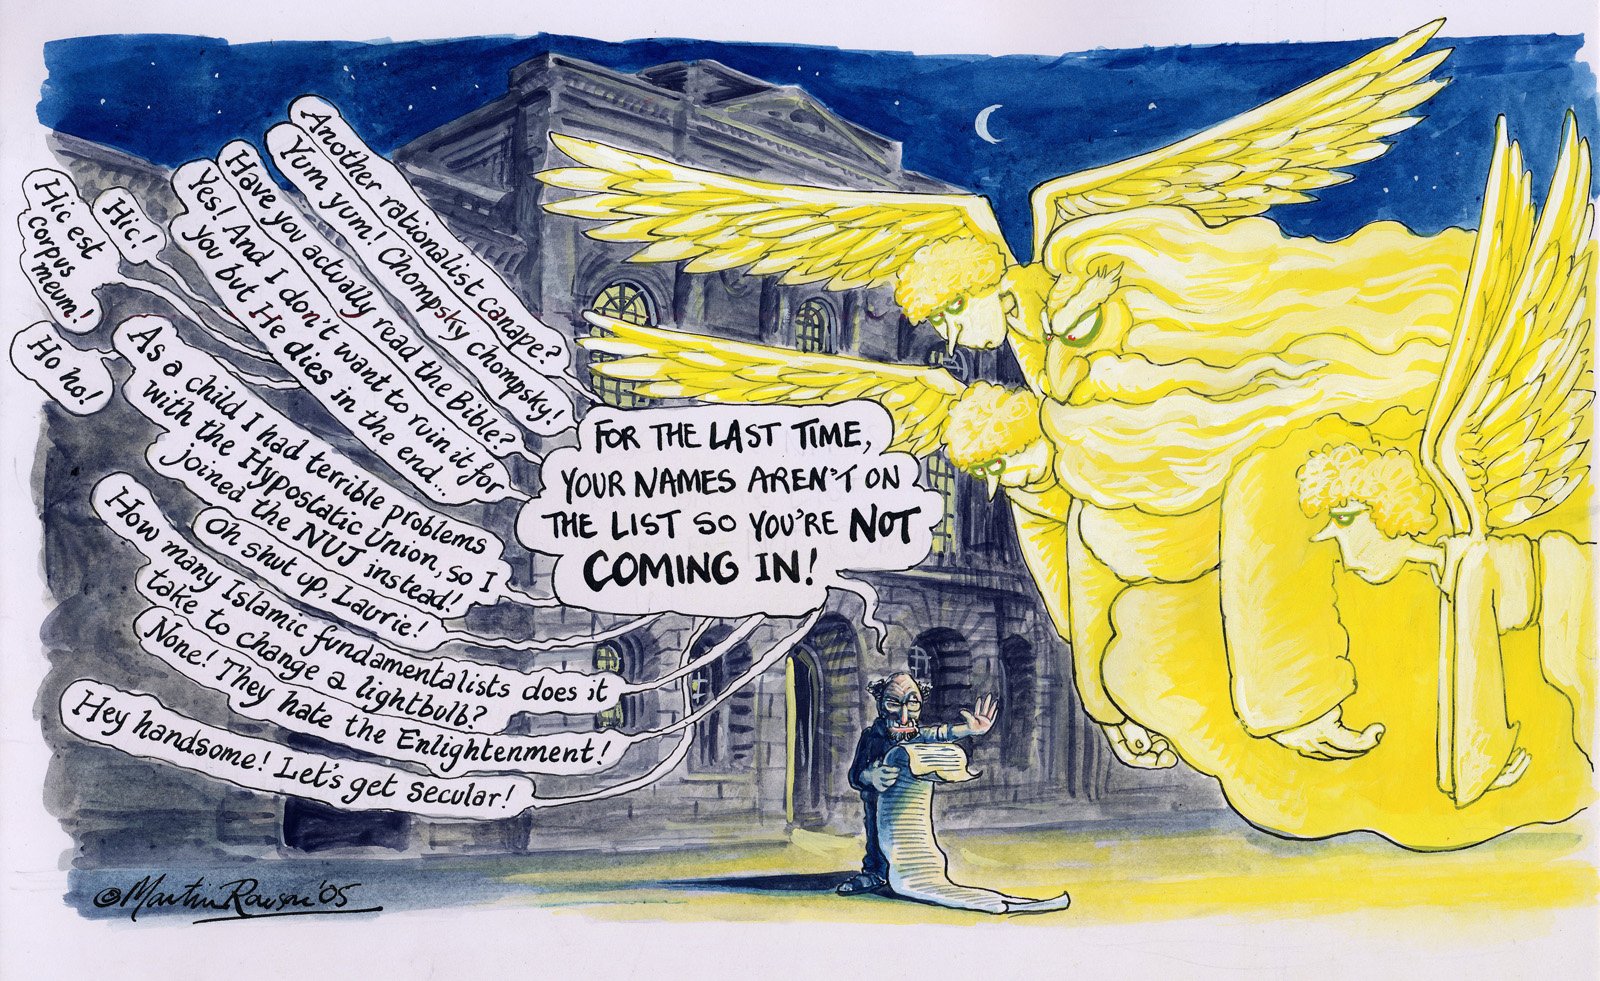 Another rationalist canape?
Yum yum! Chompsky chompsky!
Have you actually read the Bible?
Yes! And I don't want to ruin it for
you but He dies in the end...
Hic!
Hic est
corpus
meum!
Ho ho!
As a child I had terrible problems
with the Hypostatic Union, so I
joined the NUJ instead!
Oh shut up, Laurie!
How many Islamic fundamentalists does it
take to change a lightbulb?
None! They hate the Enlightenment!
Hey handsome! Let's get secular!
FOR THE LAST TIME,
YOUR NAMES AREN'T ON
THE LIST SO YOU'RE NOT
COMING IN!
©Martin Rowson '05